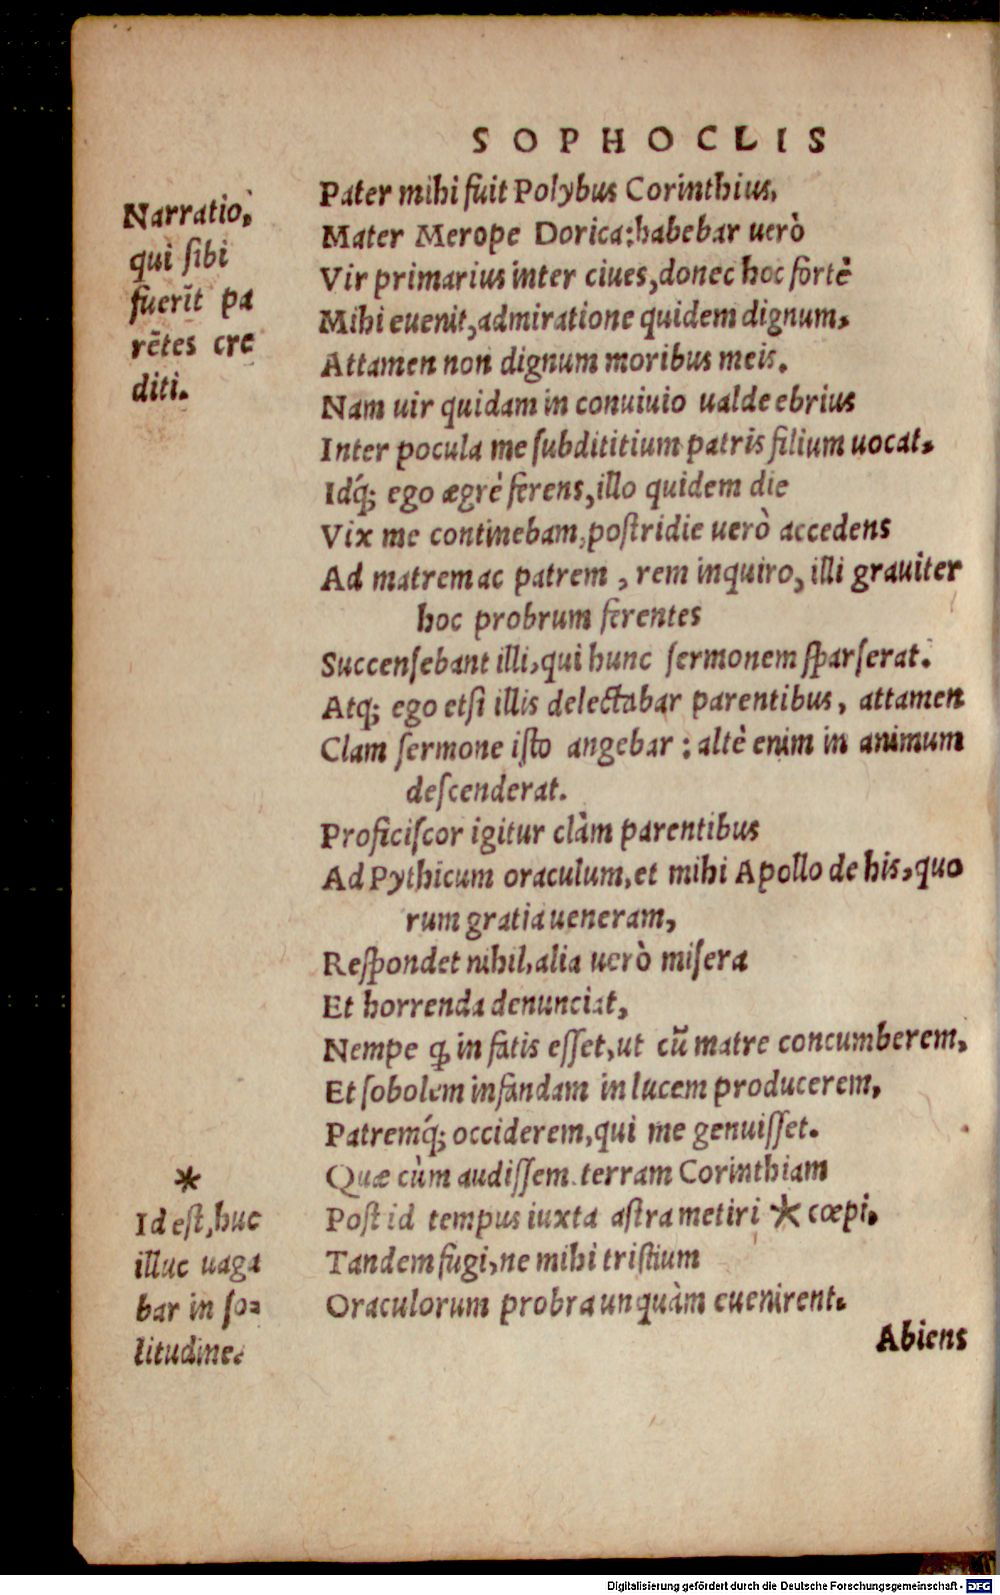 SOPHOCLIS
Narratio,
qui ſibi
fuerīt pa
rētes cre
diti.
Pater mihi fuit Polybus Corinthius,
Mater Merope Dorica: habebar uerò
Vir primarius inter ciues, donec hoc fortè
Mihi euenit, admiratione quidem dignum,
Attamen non dignum moribus meis.
Nam uir quidam in conuiuio ualde ebrius
Inter pocula me ſubdititium patris filium uocat,
Idq́; ego ægrè ferens, illo quidem die
Vix me continebam, poſtridie uerò accedens
Ad matrem ac patrem, rem inquiro, illi grauiter
hoc probrum ferentes
Succenſebant illi, qui hunc ſermonem ſparſerat.
Atq; ego etſi illis delectabar parentibus, attamen
Clam ſermone iſto angebar: altè enim in animum
deſcenderat.
Proficiſcor igitur clàm parentibus
Ad Pythicum oraculum, et mihi Apollo de his, quo
rum gratia ueneram,
Reſpondet nihil, alia uerò miſera
Et horrenda denunciat,
Nempe ꝙ in fatis eſſet, ut cū matre concumberem,
Et ſobolem infandam in lucem producerem,
Patremq́; occiderem, qui me genuiſſet.
Quæ cùm audiſſem terram Corinthiam
Poſt id tempus iuxta aſtra metiri * cœpi.
Tandem fugi, ne mihi triſtium
Oraculorum probra unquàm euenirent.
*
Id eſt, huc
illuc uaga
bar in ſo=
litudine.
Abiens
Digitalisierung gefördert durch die Deutsche Forschungsgemeinschaft - DFG